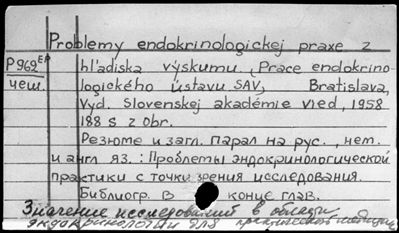 Problemy endokrinologickej praxe z
P962 EП
чеш.
hľadiska výskumu. Prace endokrino-
logického ústavu SAV, Bratislava,
Vyd. Slovenskej akadémie vied, 1958
188 s z obr.
Резюме и загл. парал на рус., нем.
и англ яз.: Проблемы эндокринологической
практики с точки зрения исследования.
Библиогр. в конце глав.
Значение исследований в области
эндокринологии для практической медицины